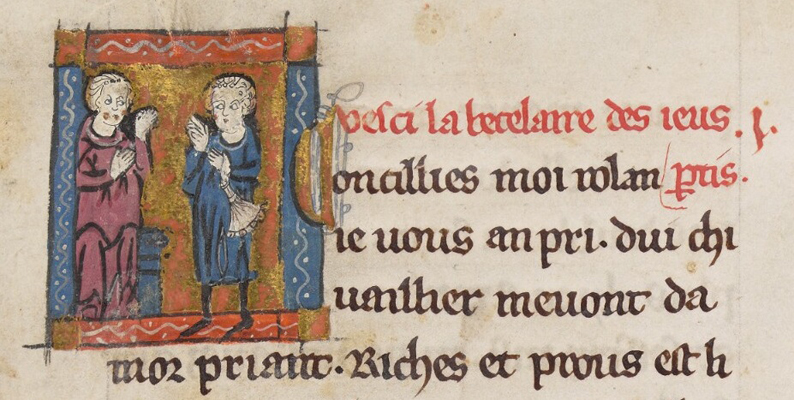 Vesci la becelaire des ieus. .j.
oncillies moi rolan ptis.
ie uous an pri. dui chi
uaillier meuont da
mor priant. Riches et prous est li